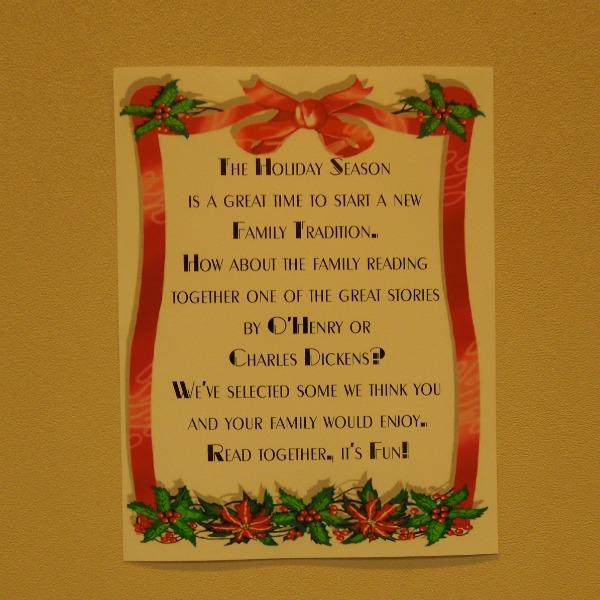 The Holiday Season
is a great time to start a new
Family Tradition.
How about the family reading
together one of the great stories
by O'Henry or
Charles Dickens?
We've selected some we think you
and your family would enjoy.
Read together, it's Fun!